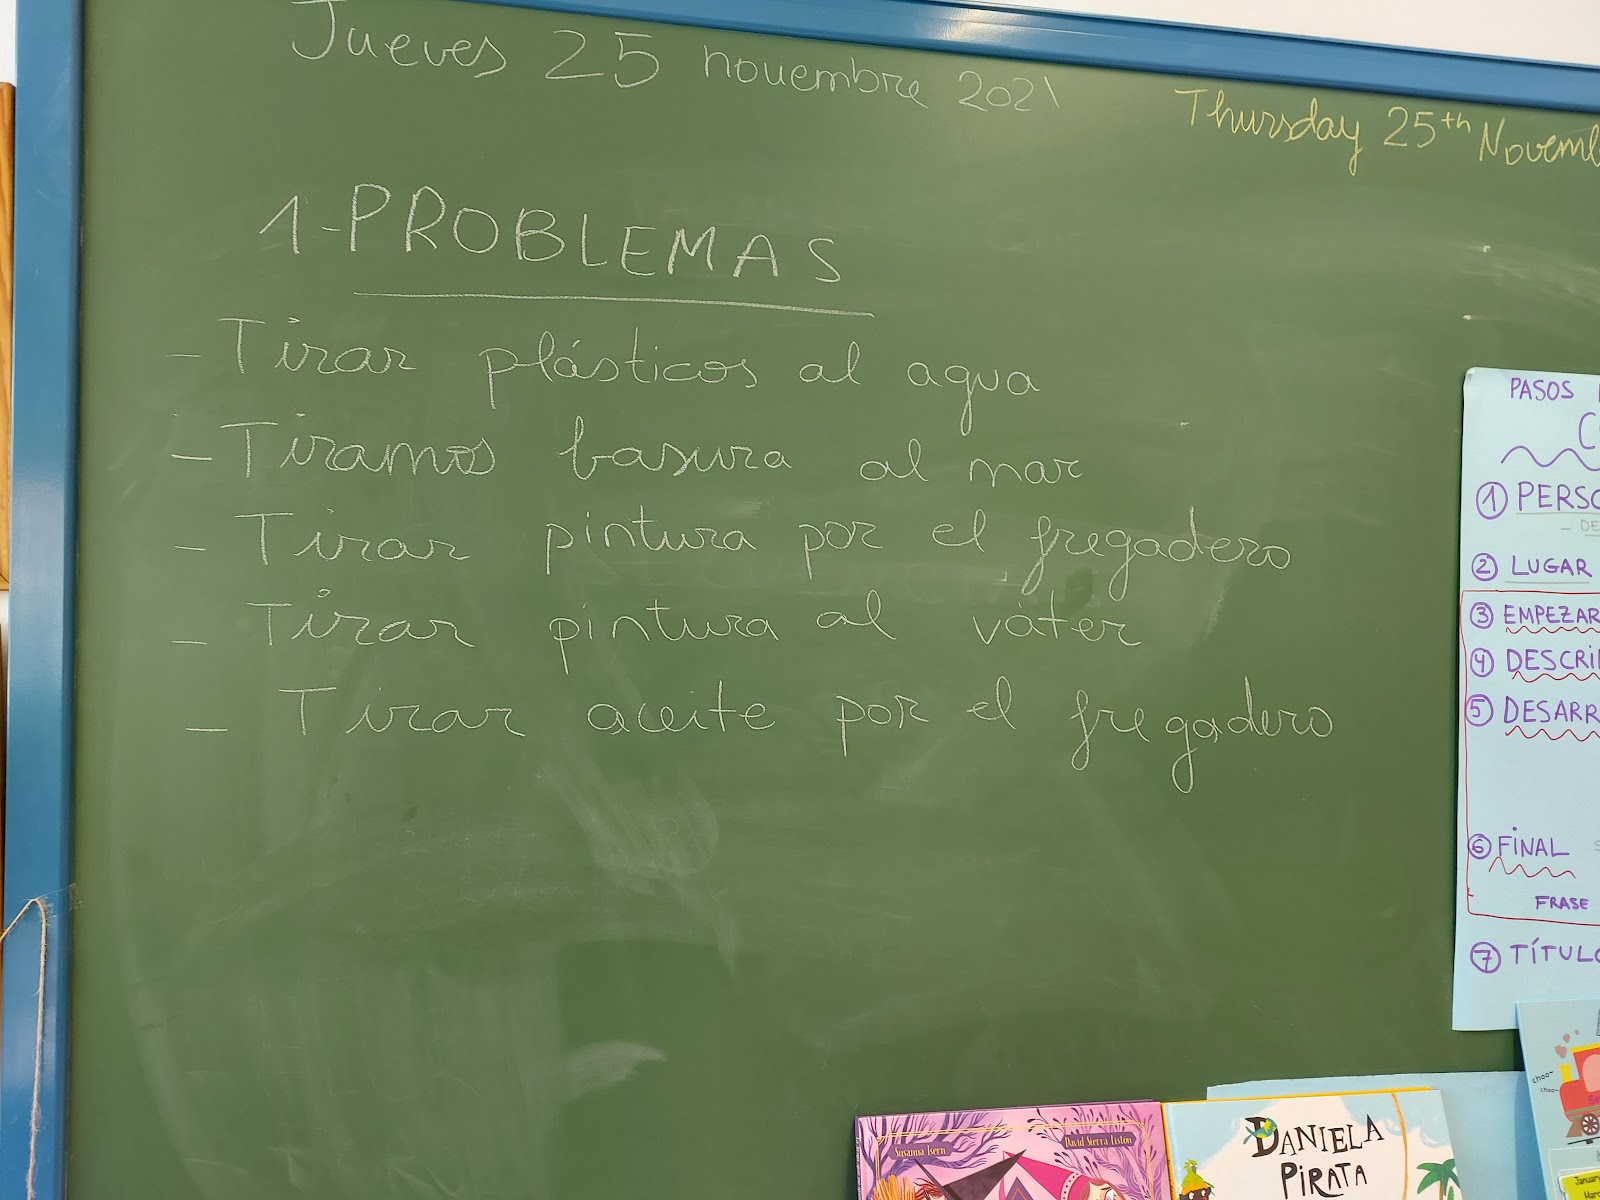 Jueves 25 noviembre 2021
Thursday 25th Novemb
1-PROBLEMAS
- Tirar plásticos al agua
- Tiramos basura al mar
- Tirar pintura por el fregadero
- Tirar pintura al váter
- Tirar aceite por el fregadero
PASOS
① PERSO
DE
② LUGAR
③ EMPEZAR
④ DESCRI
⑤ DESARR
⑥ FINAL
FRASE
⑦ TÍTULO
choo-
choo-
Susanna Isern
David Sierra Listón
DANIELA
PIRATA
Januar